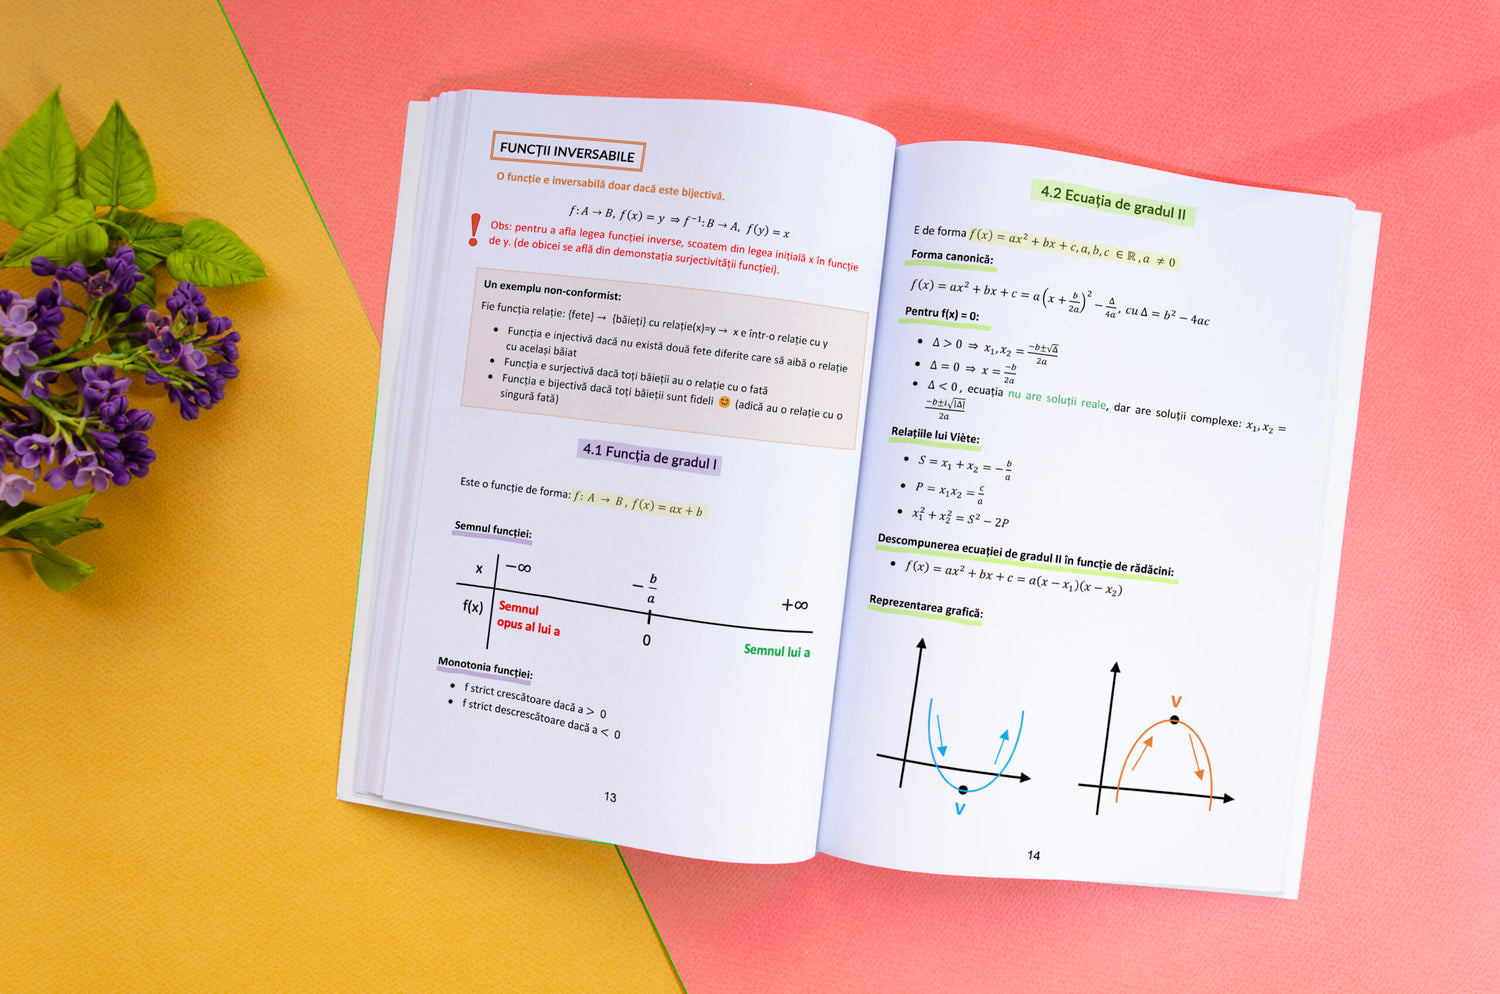 FUNCȚII INVERSABILE
O funcție e inversabilă doar dacă este bijectivă.
f: A → B, f(x) = y ⇒ f⁻¹: B → A, f(y) = x
Obs: pentru a afla legea funcției inverse, scoatem din legea inițială x în funcție
de y. (de obicei se află din demonstația surjectivității funcției).
Un exemplu non-conformist:
Fie funcția relație: {fete} → {băieți} cu relație(x)=y → x e într-o relație cu y
• Funcția e injectivă dacă nu există două fete diferite care să aibă o relație
cu același băiat
• Funcția e surjectivă dacă toți băieții au o relație cu o fată
• Funcția e bijectivă dacă toți băieții sunt fideli 😊 (adică au o relație cu o
singură fată)
4.1 Funcția de gradul I
Este o funcție de forma: f: A → B, f(x) = ax + b
Semnul funcției:
x −∞ −b/a +∞
f(x) Semnul
opus al lui a 0 Semnul lui a
Monotonia funcției:
• f strict crescătoare dacă a > 0
• f strict descrescătoare dacă a < 0
13
4.2 Ecuația de gradul II
E de forma f(x) = ax² + bx + c, a, b, c ∈ ℝ, a ≠ 0
Forma canonică:
f(x) = ax² + bx + c = a(x + b/2a)² − Δ/4a, cu Δ = b² − 4ac
Pentru f(x) = 0:
• Δ > 0 ⇒ x₁, x₂ = −b±√Δ/2a
• Δ = 0 ⇒ x = −b/2a
• Δ < 0, ecuația nu are soluții reale, dar are soluții complexe: x₁, x₂ =
−b±i√|Δ|/2a
Relațiile lui Viète:
• S = x₁ + x₂ = −b/a
• P = x₁x₂ = c/a
• x₁² + x₂² = S² − 2P
Descompunerea ecuației de gradul II în funcție de rădăcini:
• f(x) = ax² + bx + c = a(x − x₁)(x − x₂)
Reprezentarea grafică:
V
V
14